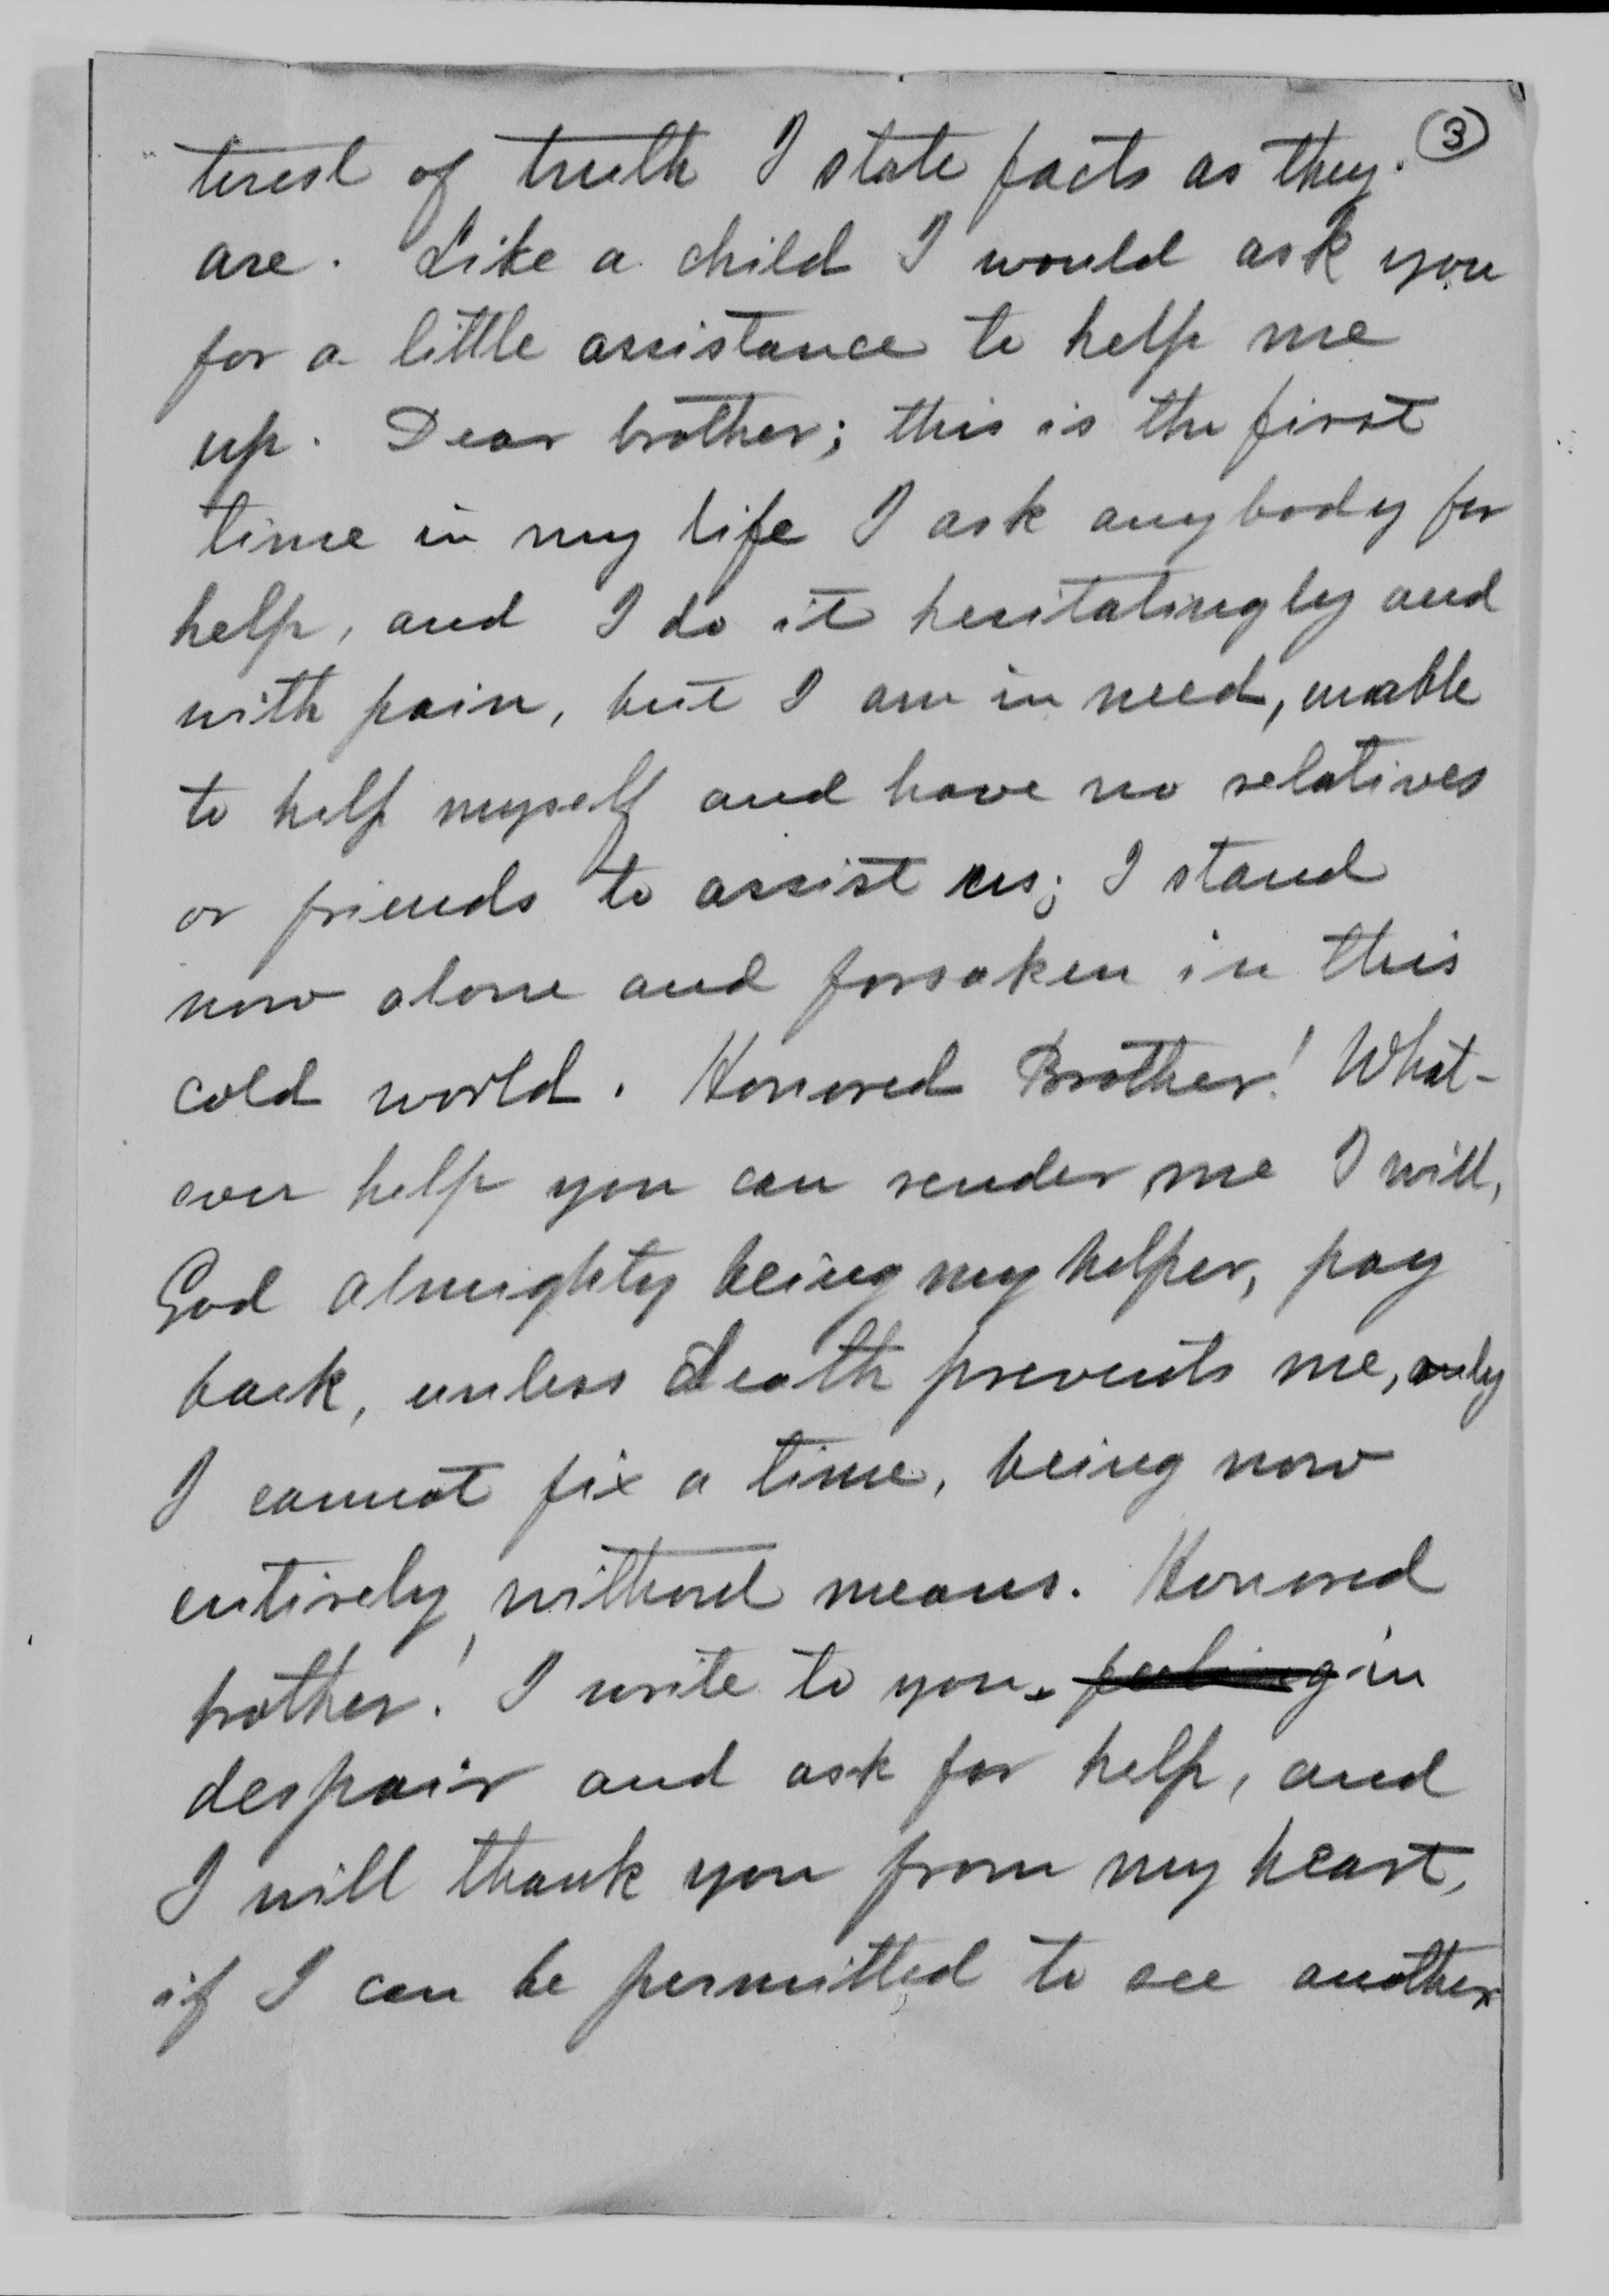 3
terest of truth I state facts as they
are. Like a child I would ask you
for a little assistance to help me
up. Dear brother; this is the first
time in my life I ask anybody for
help, and I do it hesitatingly and
with pain, but I am in need, unable
to help myself and have no relatives
or friends to assist us; I stand
now alone and forsaken in this
cold world. Honored Brother! What-
ever help you can render me I will,
God almighty being my helper, pay
back, unless death prevents me, only
I cannot fix a time, being now
entirely without means. Honored
brother! I write to you feeling in
despair and ask for help, and
I will thank you from my heart,
if I can be permitted to see another